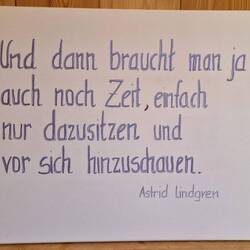 Und dann braucht man ja
auch noch Zeit, einfach
nur dazusitzen und
vor sich hinzuschauen.
Astrid Lindgren